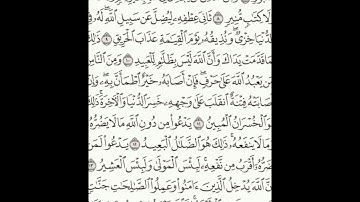 وَلَا كِتَٰبٍ مُّنِيرٍ ٨ ثَانِيَ عِطْفِهِۦ لِيُضِلَّ عَن سَبِيلِ ٱللَّهِ لَهُۥ فِي
ٱلدُّنْيَا خِزْيٌ وَنُذِيقُهُۥ يَوْمَ ٱلْقِيَٰمَةِ عَذَابَ ٱلْحَرِيقِ ٩ ذَٰلِكَ
بِمَا قَدَّمَتْ يَدَاكَ وَأَنَّ ٱللَّهَ لَيْسَ بِظَلَّٰمٍ لِّلْعَبِيدِ ١٠ وَمِنَ ٱلنَّاسِ
مَن يَعْبُدُ ٱللَّهَ عَلَىٰ حَرْفٍ فَإِنْ أَصَابَهُۥ خَيْرٌ ٱطْمَأَنَّ بِهِۦ وَإِنْ
أَصَابَتْهُ فِتْنَةٌ ٱنقَلَبَ عَلَىٰ وَجْهِهِۦ خَسِرَ ٱلدُّنْيَا وَٱلْأٓخِرَةَ ذَٰلِكَ
هُوَ ٱلْخُسْرَانُ ٱلْمُبِينُ ١١ يَدْعُوا۟ مِن دُونِ ٱللَّهِ مَا لَا يَضُرُّهُۥ
وَمَا لَا يَنفَعُهُۥ ذَٰلِكَ هُوَ ٱلضَّلَٰلُ ٱلْبَعِيدُ ١٢ يَدْعُوا۟ لَمَن
ضَرُّهُۥٓ أَقْرَبُ مِن نَّفْعِهِۦ لَبِئْسَ ٱلْمَوْلَىٰ وَلَبِئْسَ ٱلْعَشِيرُ ١٣
إِنَّ ٱللَّهَ يُدْخِلُ ٱلَّذِينَ ءَامَنُوا۟ وَعَمِلُوا۟ ٱلصَّٰلِحَٰتِ جَنَّٰتٍ